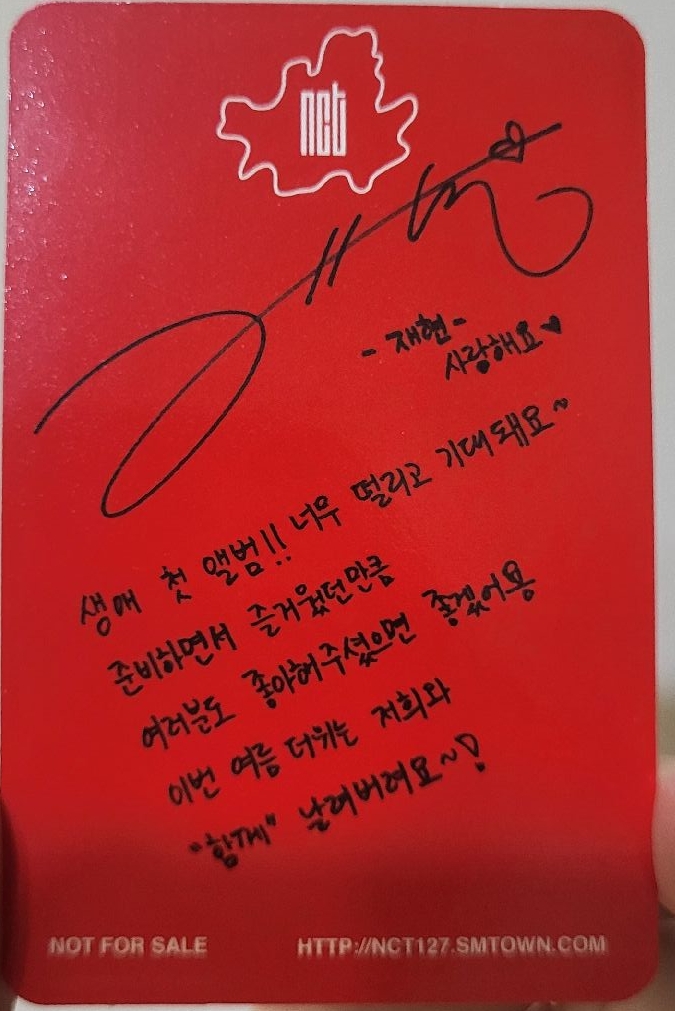 nct
-재현-
사랑해요♥
생애 첫 앨범!! 너무 떨리고 기대돼요~
준비하면서 즐거웠던만큼
여러분도 좋아해주셨으면 좋겠어용
이번 여름 더위는 저희와
"함께" 날려버려요~!
NOT FOR SALE
HTTP://NCT127.SMTOWN.COM